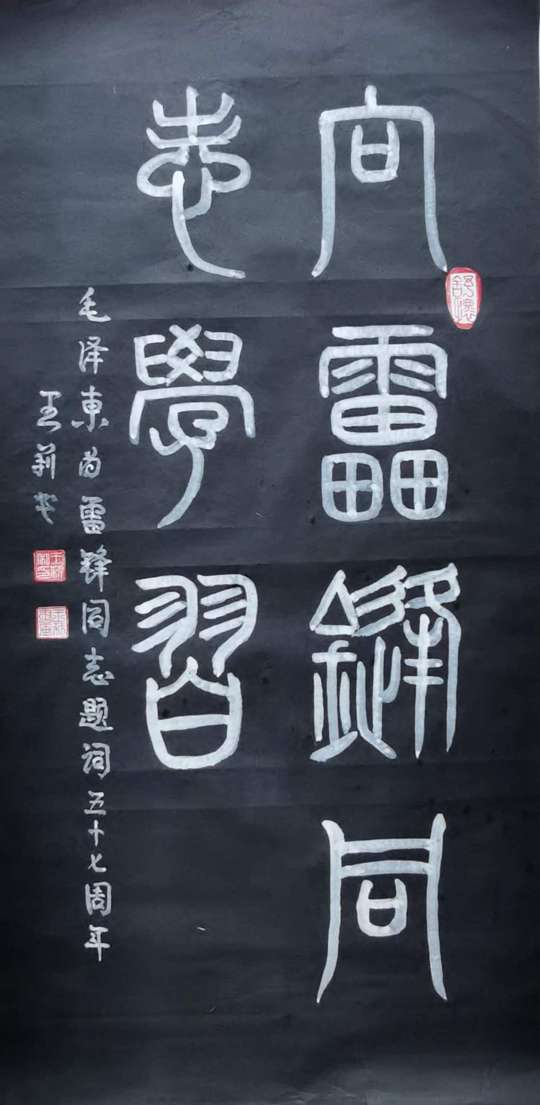 向雷鋒同
志學習
毛泽東为雷锋同志题词五十七周年
王莉书